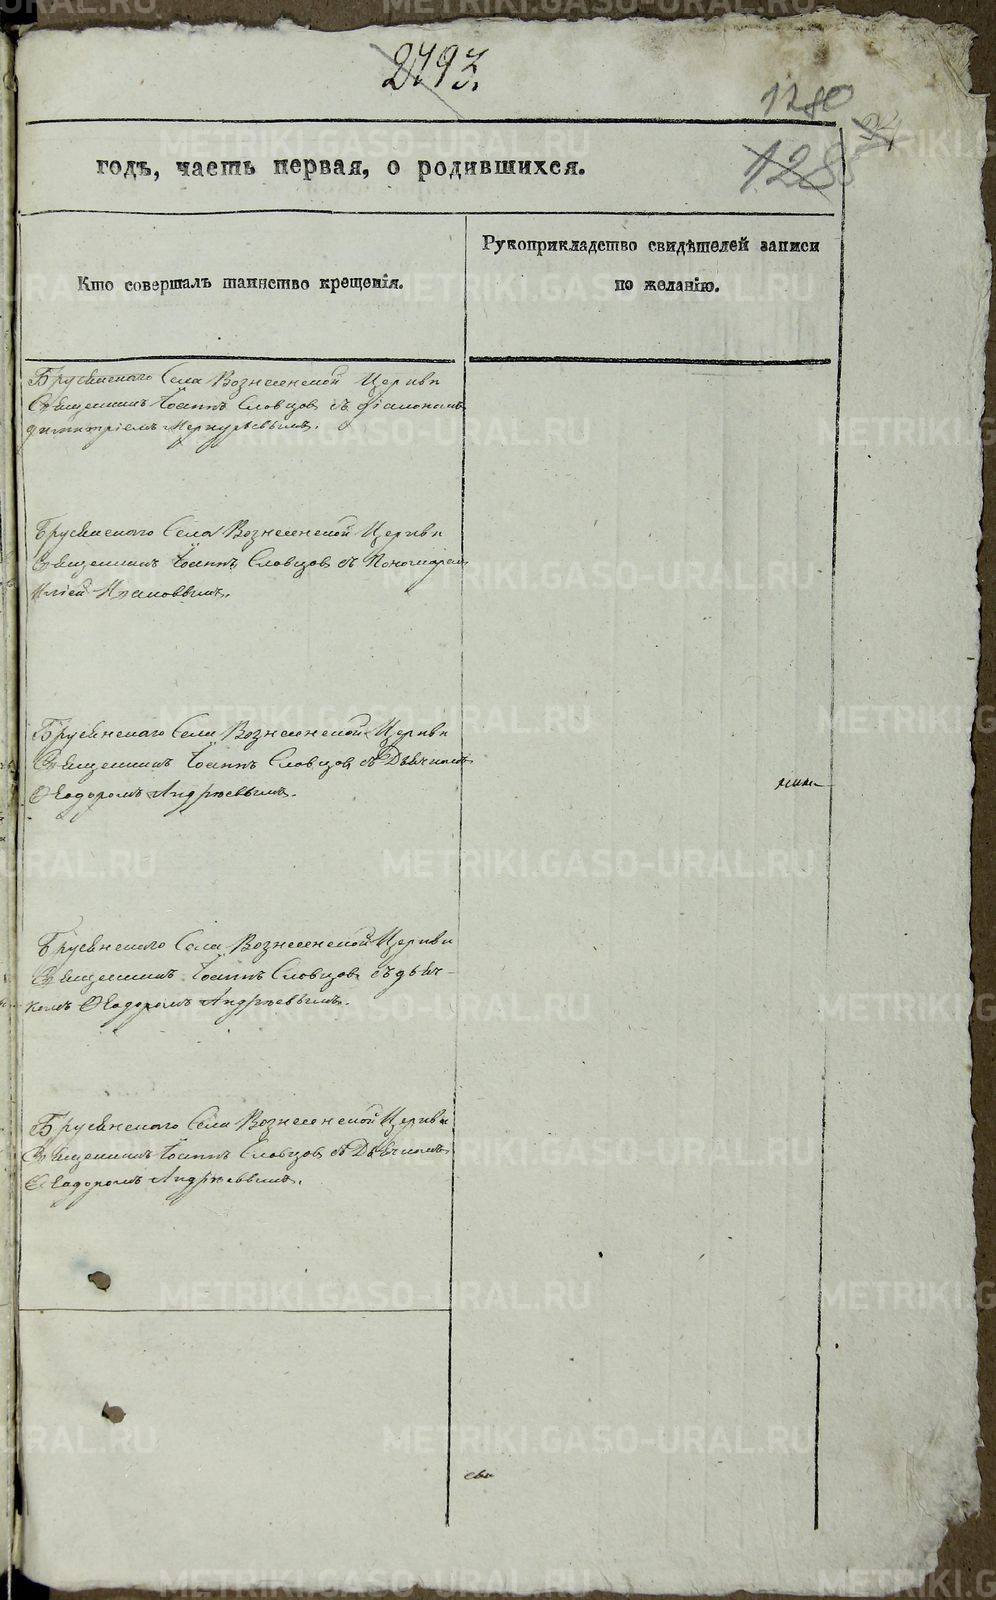 2793.
1280
128
годъ, часть первая, о родившихся.
Кто совершалъ таинство крещенія.
Рукоприкладство свидѣтелей записи
по желанію.
Брусянского Села Вознесенской Церкви
Священникъ Іоаннъ Словцовъ съ діакономъ
димитріемъ Меркурьевымъ.
Брусянского Села Вознесенской Церкви
Священникъ Іоаннъ Словцовъ съ Пономаремъ
Иліей
Брусянского Села Вознесенской Церкви
Священникъ Іоаннъ Словцовъ съ Дьячкомъ
Ѳеодоромъ Андреевымъ.
Брусянского Села Вознесенской Церкви
Священникъ Іоаннъ Словцовъ съ дьяч-
комъ Ѳеодоромъ Андреевымъ.
Брусянского Села Вознесенской Церкви
Священникъ Іоаннъ Словцовъ съ Дьячкомъ
Ѳеодоромъ Андреевымъ.
METRIKI.GASO-URAL.RU